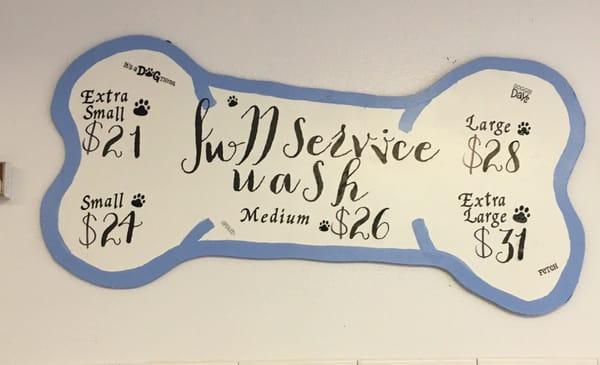 It's a DOG thing
Extra
Small
$21
Small
$24
Full Service
wash
Medium $26
DOGGIE
Days
Large
$28
Extra
Large
$31
FETCH